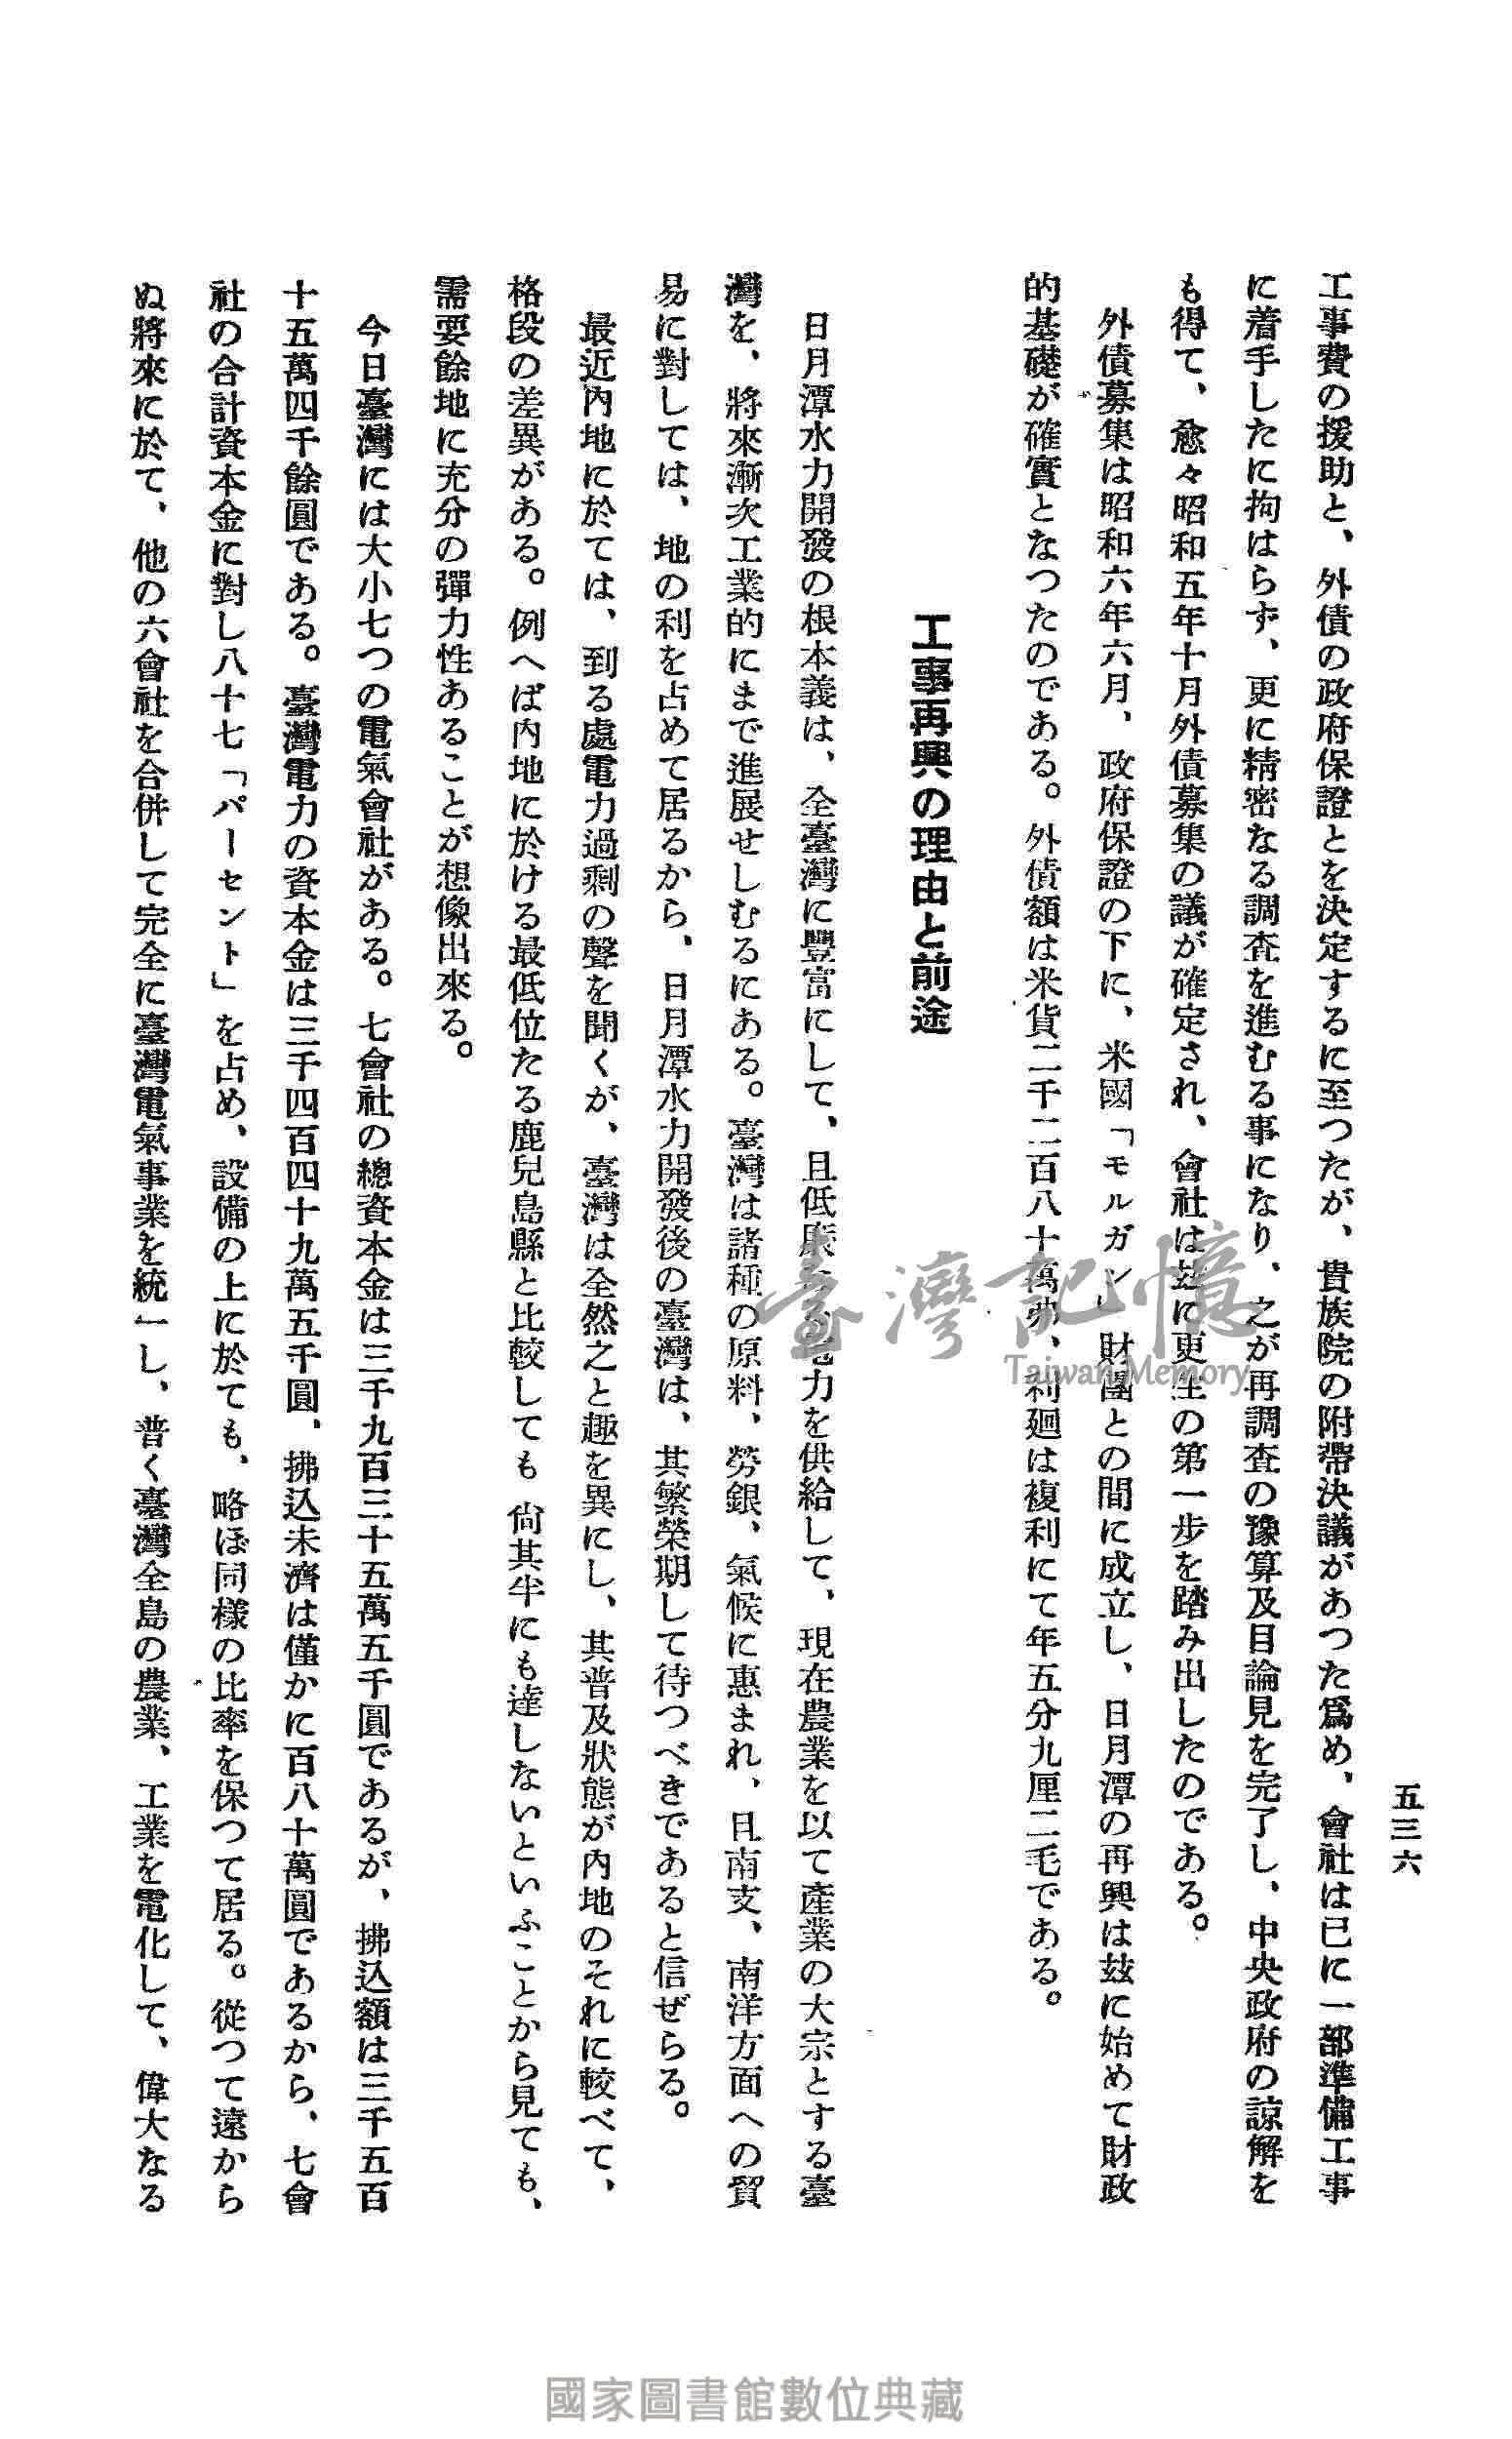 五三六
工事費の援助と、外債の政府保證とを決定するに至つたが、貴族院の附帶決議があつた爲め、會社は已に一部準備工事
に着手したに拘はらず、更に精密なる調査を進むる事になり、之が再調査の豫算及目論見を完了し、中央政府の諒解を
も得て、愈々昭和五年十月外債募集の議が確定され、會社は玆に更生の第一步を踏み出したのである。
外債募集は昭和六年六月、政府保證の下に、米國「モルガン」財團との間に成立し、日月潭の再興は玆に始めて財政
的基礎が確實となつたのである。外債額は米貨二千二百八十萬弗、利廻は複利にて年五分九厘二毛である。
工事再興の理由と前途
日月潭水力開發の根本義は、全臺灣に豐富にして、且低廉なる電力を供給して、現在農業を以て產業の大宗とする臺
灣を、將來漸次工業的にまで進展せしむるにある。臺灣は諸種の原料、勞銀、氣候に惠まれ、且南支、南洋方面への貿
易に對しては、地の利を占めて居るから、日月潭水力開發後の臺灣は、其繁榮期して待つべきであると信ぜらる。
最近內地に於ては、到る處電力過剩の聲を聞くが、臺灣は全然之と趣を異にし、其普及狀態が內地のそれに較べて、
格段の差異がある。例へば內地に於ける最低位たる鹿兒島縣と比較しても尙其半にも達しないといふことから見ても、
需要餘地に充分の彈力性あることが想像出來る。
今日臺灣には大小七つの電氣會社がある。七會社の總資本金は三千九百三十五萬五千圓であるが、拂込額は三千五百
十五萬四千餘圓である。臺灣電力の資本金は三千四百四十九萬五千圓、拂込未濟は僅かに百八十萬圓であるから、七會
社の合計資本金に對し八十七「パーセント」を占め、設備の上に於ても、略ぼ同樣の比率を保つて居る。從つて遠から
ぬ將來に於て、他の六會社を合併して完全に臺灣電氣事業を統一し、普く臺灣全島の農業、工業を電化して、偉大なる
臺灣記憶
Taiwan Memory
國家圖書館數位典藏